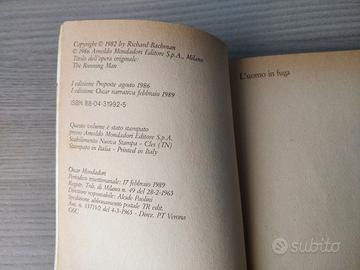 Copyright © 1982 by Richard Bachman
© 1986 Arnoldo Mondadori Editore S.p.A., Milano
Titolo dell'opera originale:
The Running Man
I edizione Proposte agosto 1986
I edizione Oscar narrativa febbraio 1989
ISBN 88-04-31992-5
Questo volume è stato stampato
presso Arnoldo Mondadori Editore S.p.A.
Stabilimento Nuova Stampa - Cles (TN)
Stampato in Italia - Printed in Italy
Oscar Mondadori
Periodico trisettimanale: 17 febbraio 1989
Registr. Trib. di Milano n. 49 del 28-2-1965
Direttore responsabile: Alcide Paolini
Spedizione abbonamento postale TR edit.
Aut. n. 55715/2 del 4-3-1965 - Direz. PT Verona
OSC
L'uomo in fuga
subito